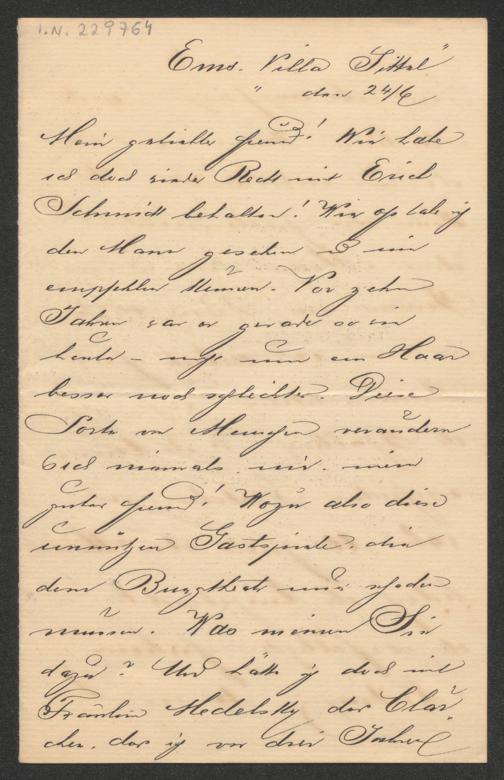 I.N. 229764
Ems. Villa Sittel"
" den 24/6
Mein geliebter Freund! Wie habe
ich doch wieder Recht mit Erich
Schmidt behalten! Wie oft habe ich
den Mann gesehen & ein
empfehlen können. Vor zehn
Jahren war er gerade so wie
heute - nicht um ein Haar
besser noch schlechter. Diese
Sorte von Menschen verändern
sich niemals mein
guter Freund! Wozu also diese
unnützen Gastspiele, die
dem Burgtheater nur schaden
müssen. Was meinen Sie
dazu? Und hatte ich doch mit
Fräulein Medelsky der Clär-
chen, das ich vor drei Jahren